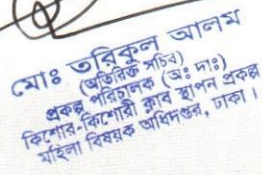 মোঃ তরিকুল আলম
(অতিরিক্ত সচিব)
প্রকল্প পরিচালক (অঃ দাঃ)
কিশোর-কিশোরী ক্লাব স্থাপন প্রকল্প
মহিলা বিষয়ক অধিদপ্তর, ঢাকা।